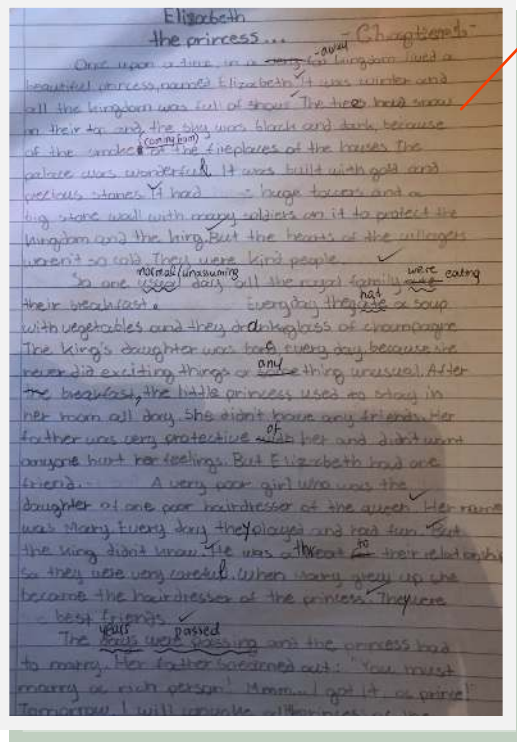 Elizabeth
the princess...
- Chapter 1 -
-away
One upon a time, in a far kingdom lived a
beautiful princess, named Elizabeth. It was winter and
all the kingdom was full of snow. The trees had snow
on their top and the sky was black and dark, because
(coming from)
of the smoke of the fireplaces of the houses. The
palace was wonderful. It was built with gold and
precious stones. It had huge towers and a
big stone wall with many soldiers on it to protect the
kingdom and the king. But the hearts of the villagers
weren't so cold. They were kind people.
normal/unassuming were eating
So one usual day all the royal family
hat
their breakfast. Everyday they ate a soup
with vegetables and they drank glass of champagne
The king's daughter was every day, because she
any
never did exciting things or thing unusual. After
the breakfast, the little princess used to stay in
her room all day. She didn't have any friends. Her
of
father was very protective her and didn't want
anyone hurt her feelings. But Elizabeth had one
friend. A very poor girl who was the
daughter of one poor hairdresser of the queen. Her name
was Mary. Every day they played and had fun. But
to
the king didn't know. He was a threat their relationship
so they were very careful. When Mary grew up she
became the hairdresser of the princess. They were
best friends
years passed
The days were passing and the princess had
to marry. Her father out: "You must
marry a rich person! Mmm... I got it, a prince!"
Tomorrow, I will princes of the